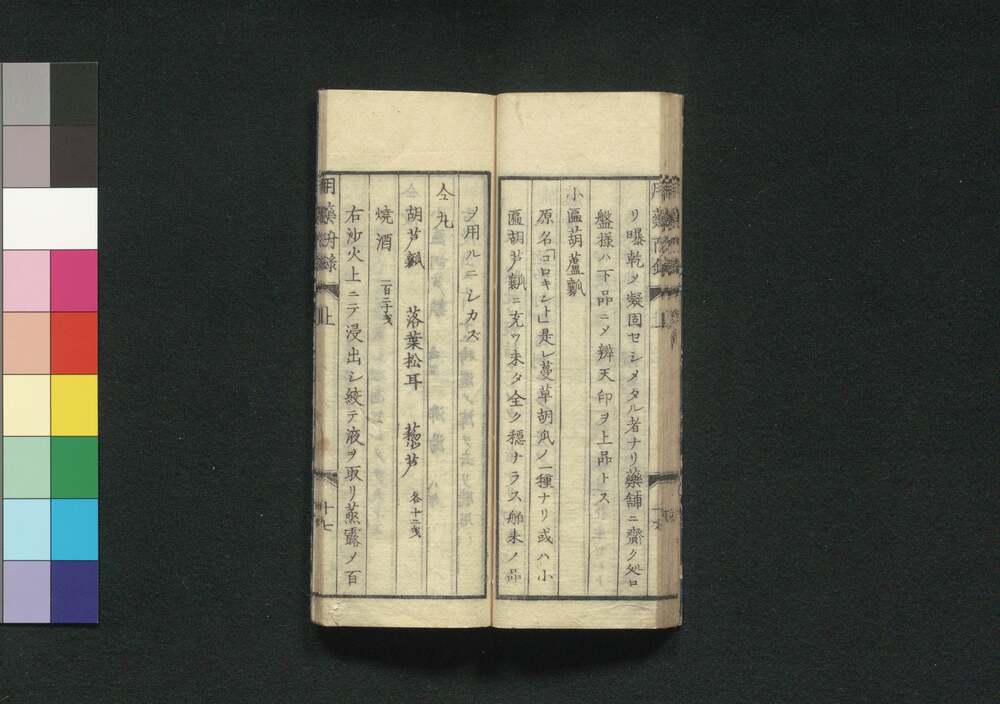 リ曝乾メ凝固セシメタル者ナリ藥舗ニ齎ク処ロ
盤様ハ下品ニメ辨天印ヲ上品トス
小匾葫蘆瓤
原名「コロキント」是レ蔓草胡瓜ノ一種ナリ或ハ小
匾胡芦瓤ニ充ツ未タ全ク穏ナラス舶来ノ品
ヲ用ルニシカズ
仝九
胡芦瓤 落葉松耳 藜芦 各十二戔
焼酒 一百二十戔
右沙火上ニテ浸出シ絞テ液ヲ取リ蒸露メ百
上
十七